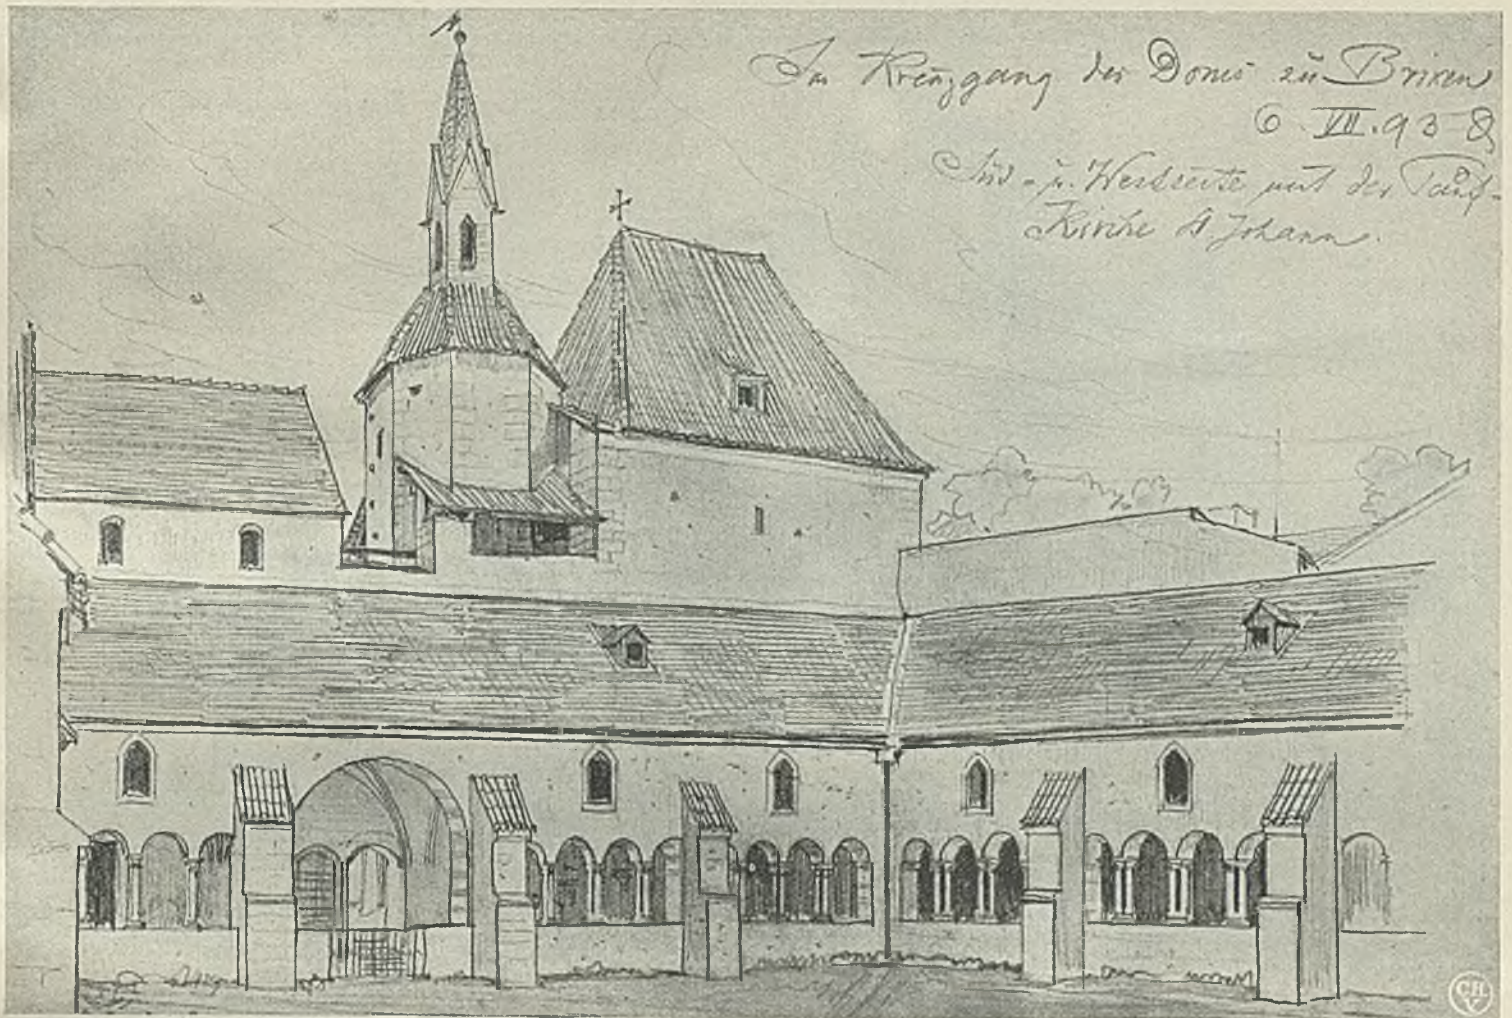 Im Kreuzgang des Doms zu Brixen
6. VII. 93
Süd- u. Westseite mit der Tauf-
Kirche St Johann.
CH
V